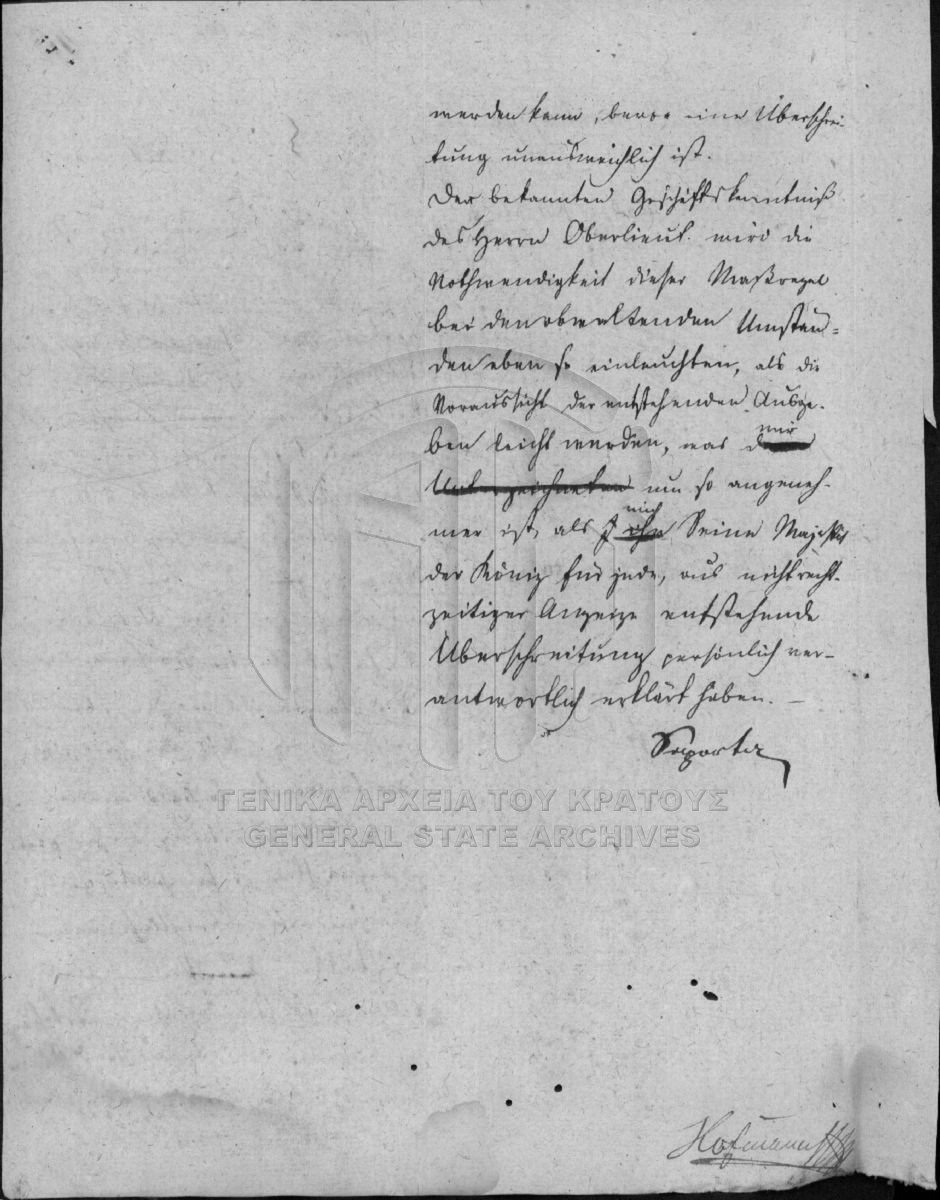 werden kann, bevor eine Überschrei-
tung unausweichlich ist.
Der bekannten Geschäftskenntniß
des Herrn Oberlieut. wird die
Nothwendigkeit dieser Maßregel
bei den obwaltenden Umstän=
den eben so einleuchten, als die
Voraussicht der entstehenden Ausga-
ben leicht werden, was dem mir
Unterzeichneten um so angeneh-
mer ist, als ihn mich Seine Majestät
der König für jede, aus nicht recht-
zeitiger Anzeige entstehende
Überschreitung persönlich ver-
antwortlich erklärt haben. —
ΓΕΝΙΚΑ ΑΡΧΕΙΑ ΤΟΥ ΚΡΑΤΟΥΣ
GENERAL STATE ARCHIVES
Hofmann